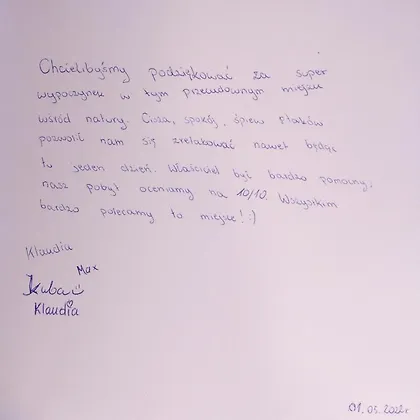 Chcielibyśmy podziękować za super
wypoczynek w tym przecudownym miejscu
wśród natury. Cisza, spokój, śpiew ptaków
pozwolił nam się zrelaksować nawet będąc
tu jeden dzień. Właściciel był bardzo pomocny,
nasz pobyt oceniamy na 10/10. Wszystkim
bardzo polecamy to miejsce! :)
Klaudia
Max
Kuba
Klaudia
01.05.2022r